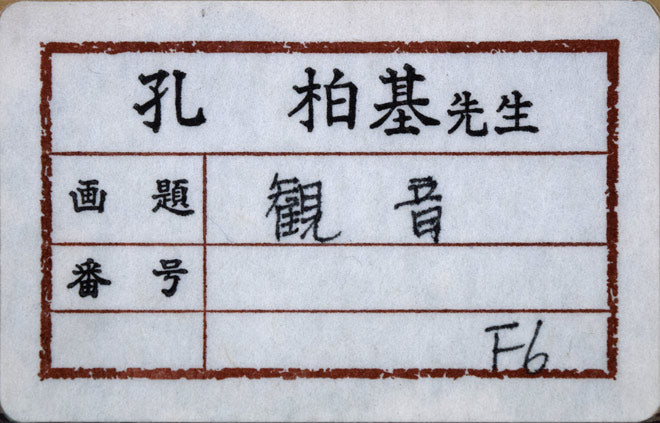 孔 柏基先生
画題 観音
番号
F6